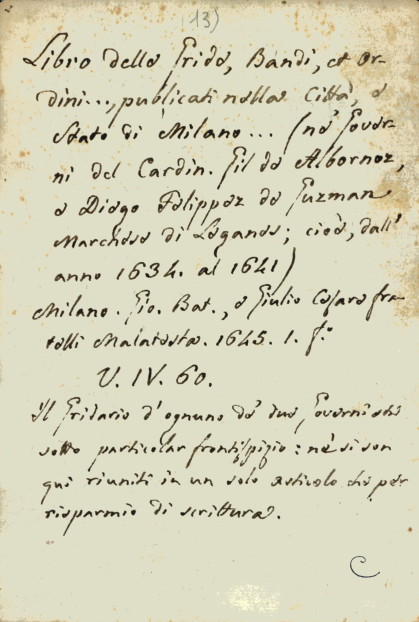 (13)
Libro delle Gride, Bandi, et Or-
dini..., publicati nella Città, e
Stato di Milano... (ne' Gover-
ni del Cardin. Gil de Albornoz,
e Diego Felippez de Guzman
Marchese di Leganes; cioè, dall'
anno 1634. al 1641)
Milano. Gio. Bat., e Giulio Cesare fra-
telli Malatesta. 1645. 1. f.°
V. IV. 60.
Il Gridario d'ognuno de' due Governi sta
sotto particolar frontispizio: nè si son
qui riuniti in un solo articolo che per
risparmio di scrittura.
C